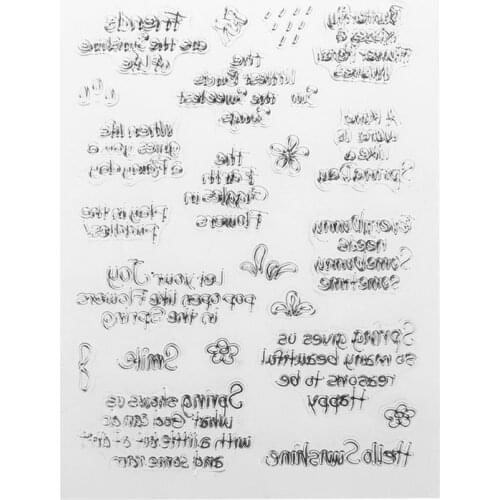 Friends
are the Sunshine
of Life
the
Littlest Birds
the Sweetest
Songs
Butterfly
Kisses
A
Kind
Word is
Like a
Spring Day
When life
gives you a
Rainy day
Play in the
Puddles!
the
Earth
Giggles in
Flowers
Every Bunny
needs
Some Bunny
Sometime
Let your Joy
pop open like Flowers
in the Spring
Smile
Spring gives us
so many beautiful
reasons to be
Happy
Spring shows us
what God can do
with a little bit of dirt
and some rain
Hello Sunshine